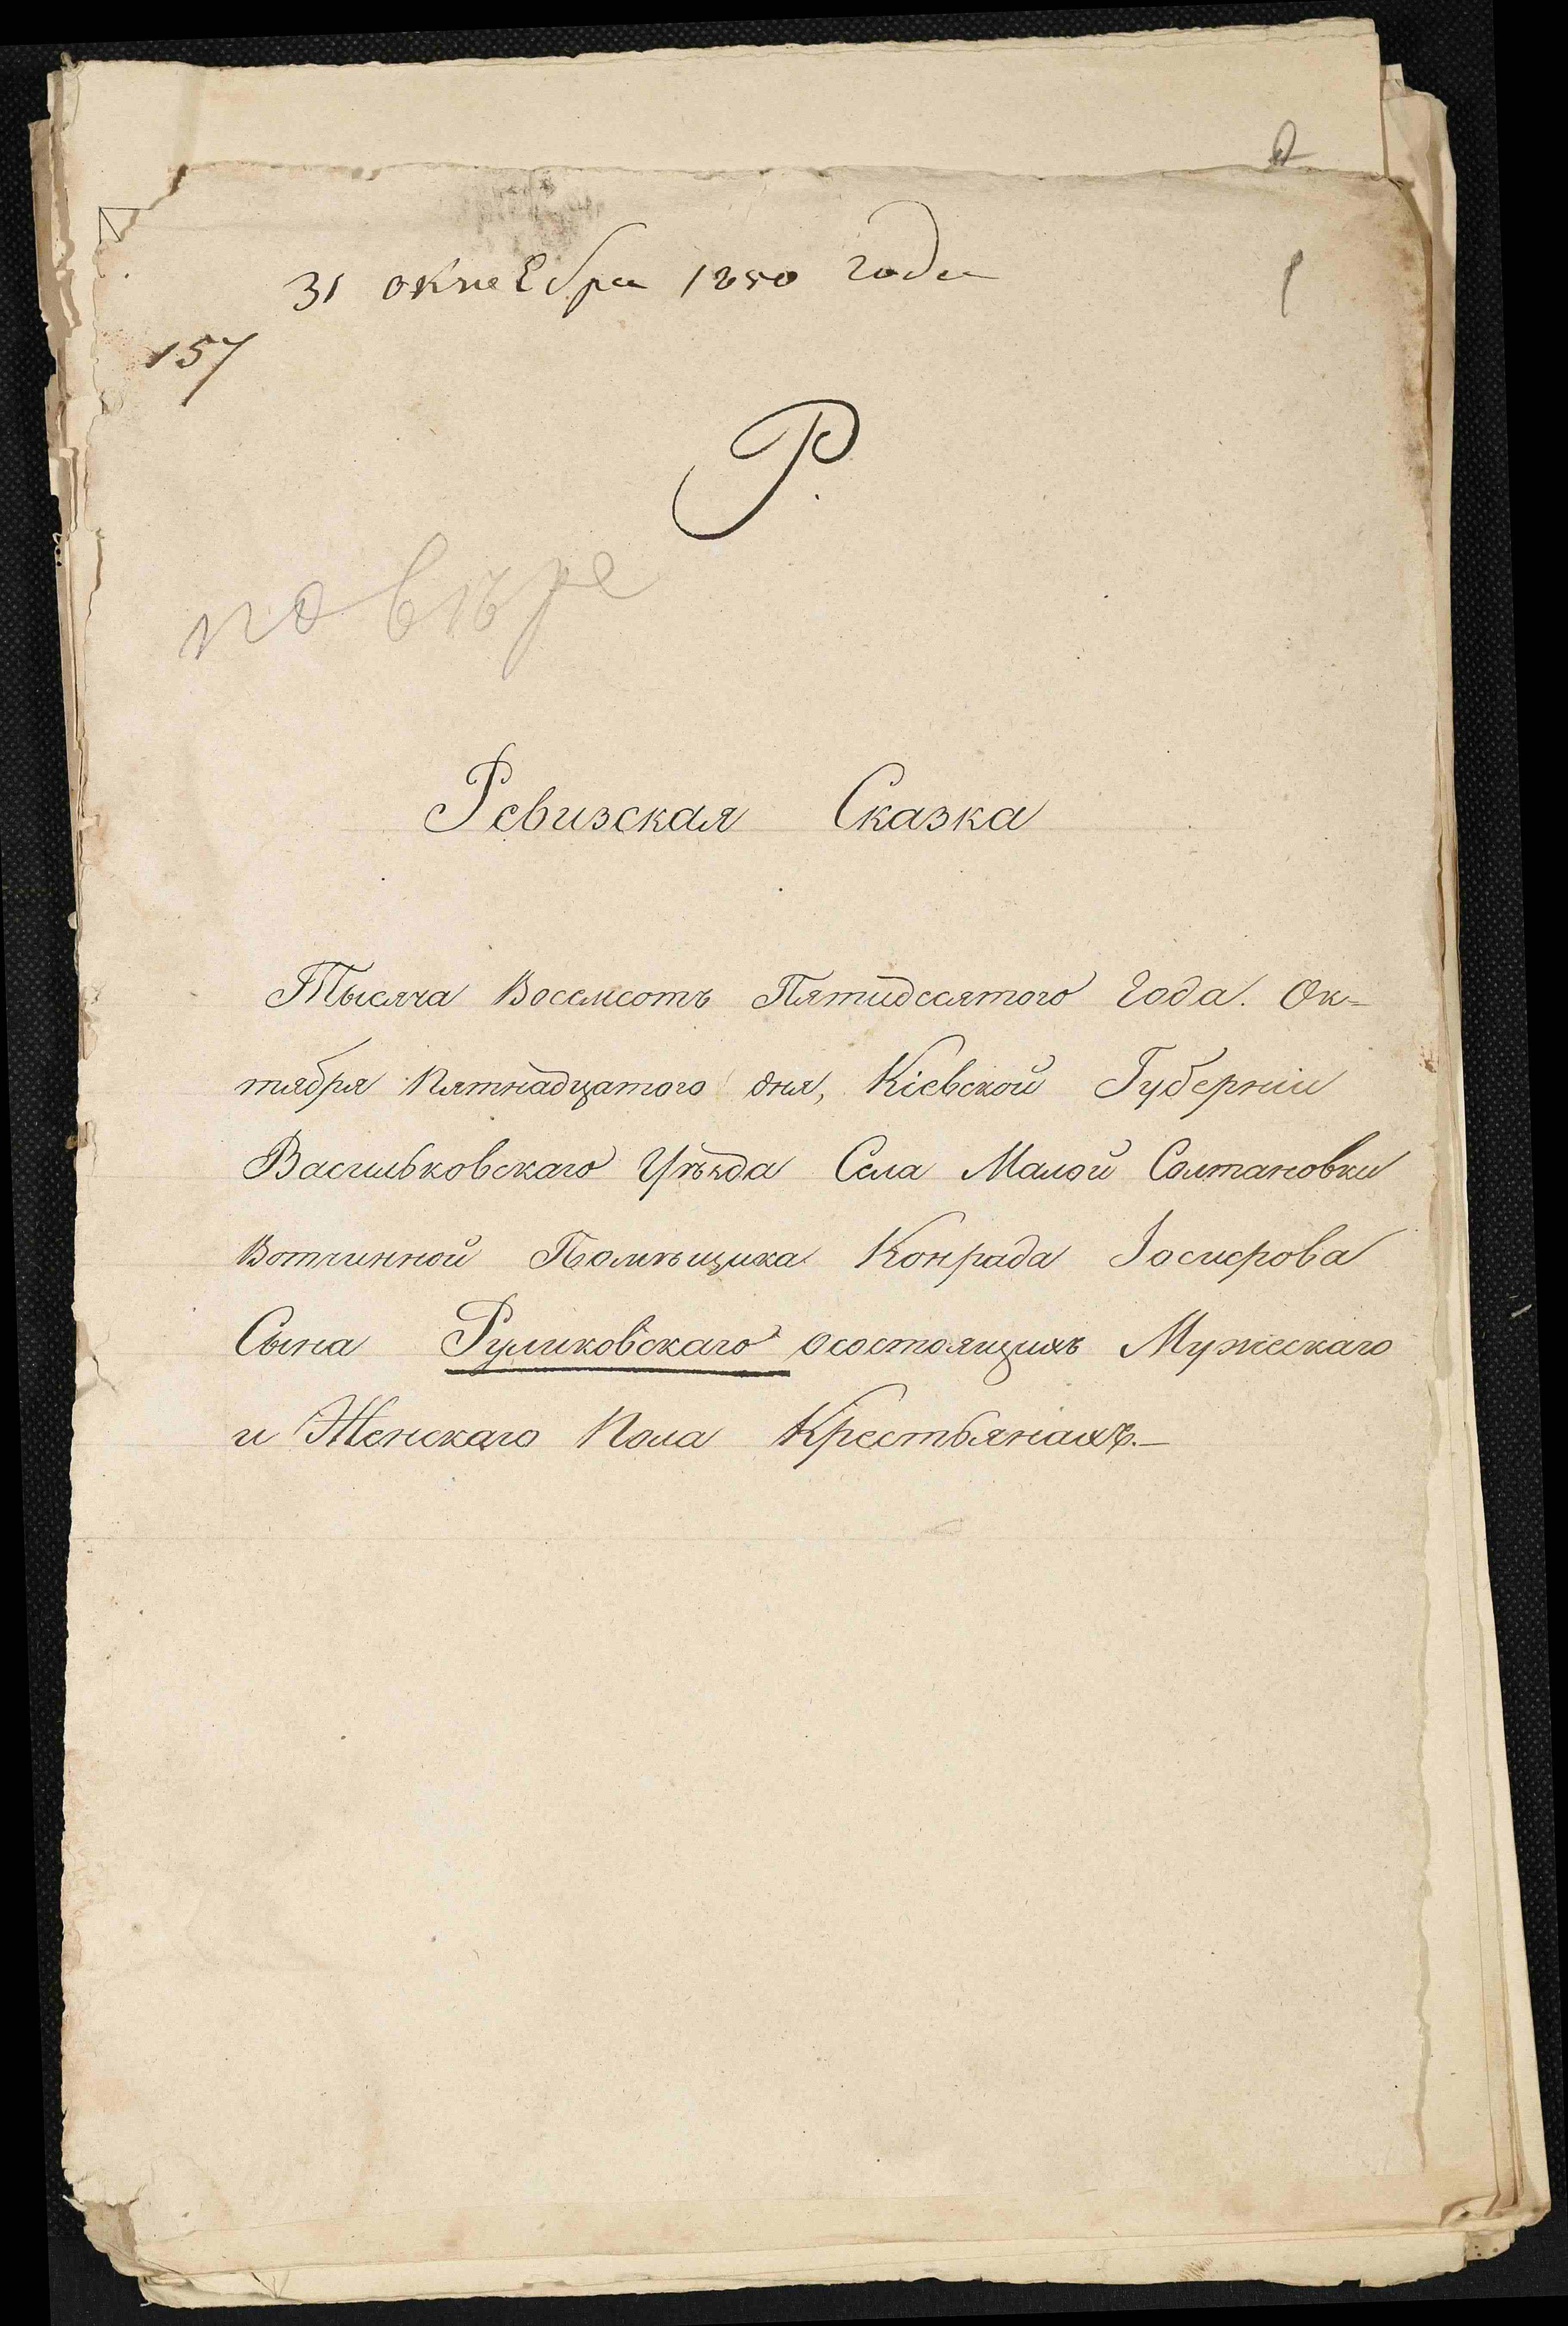 31 октебра 1850 года
157
Р.
повѣре
Ревизская Сказка
Тысяча Восемсотъ Пятидесятого Года. Ок=
тября Пятнадцатого дня, Кіевской Губерніи
Васильковскаго Уѣзда Села Малой Солтановки
Вотчинной Помѣщика Конрада Іосифова
Сына Руликовскаго осостоящихъ Мужескаго
и Женскаго Пола Крестьянахъ.—